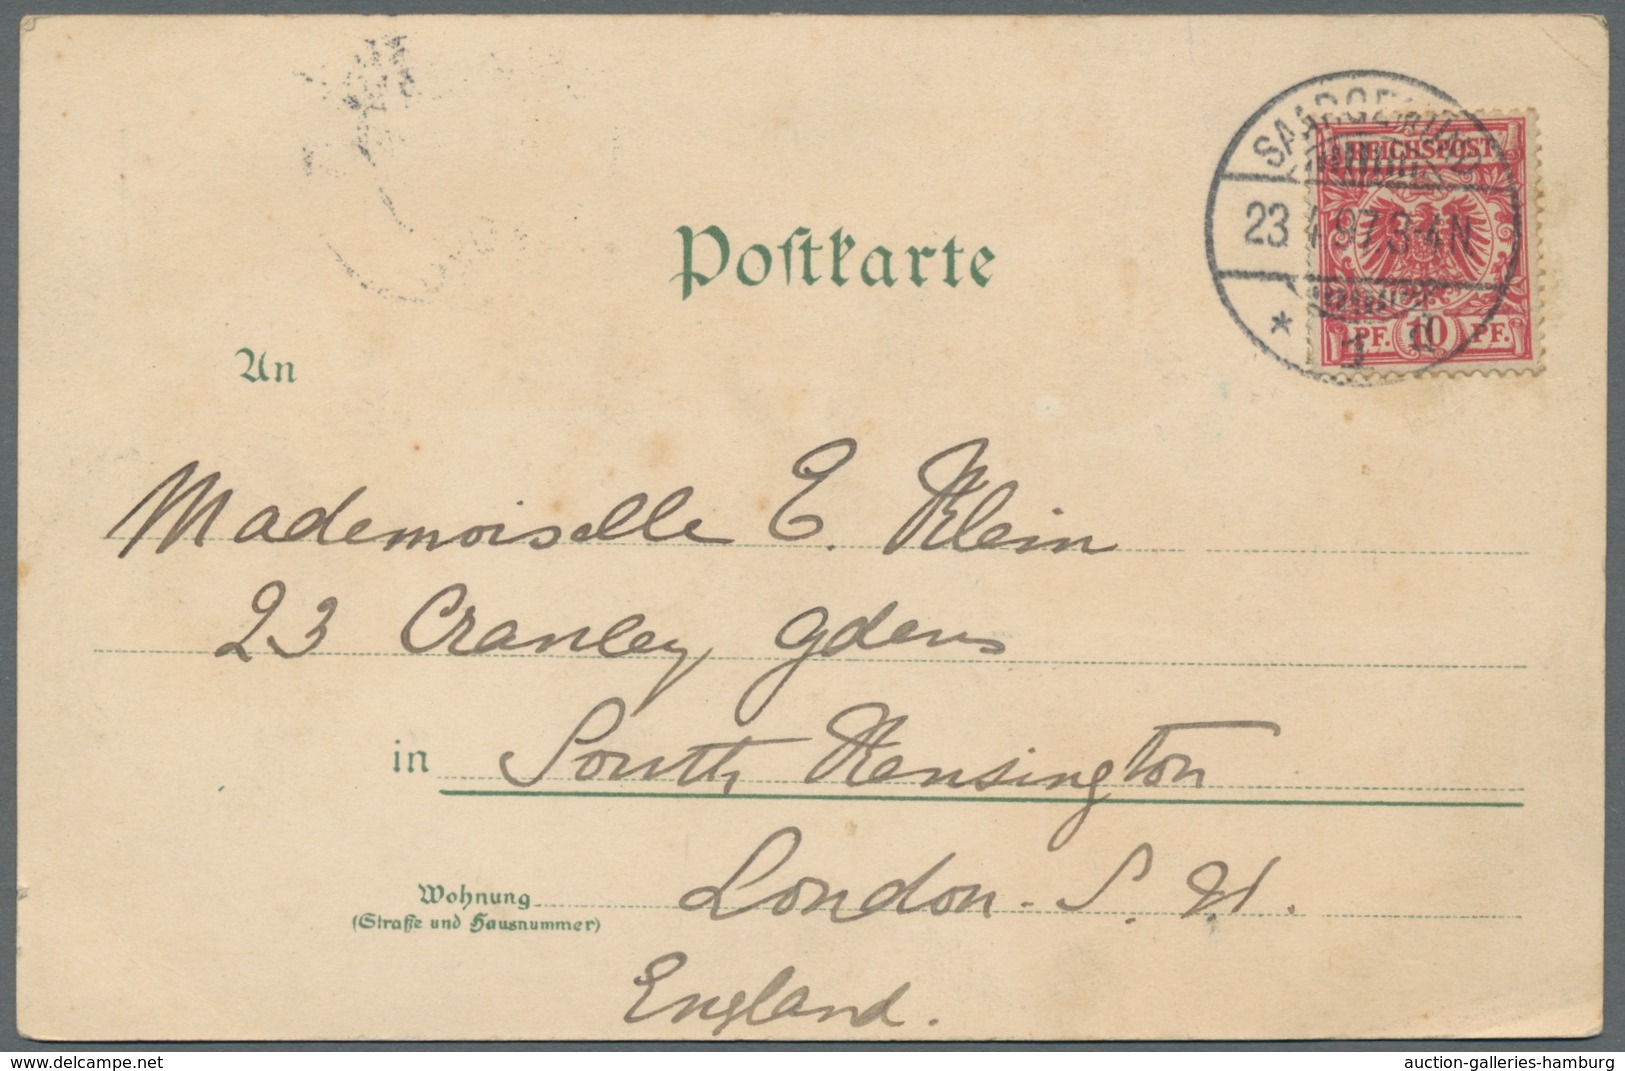 Postkarte
SAARGEMÜND
23 4 97 3-4 N
* 1 d
REICHSPOST
PF. 10 PF.
An
Mademoiselle E. Klein
23 Cranley gdens
in South Kensington
Wohnung London. S. W.
(Straße und Hausnummer)
England.
delcampe.net
auction-galleries-hamburg